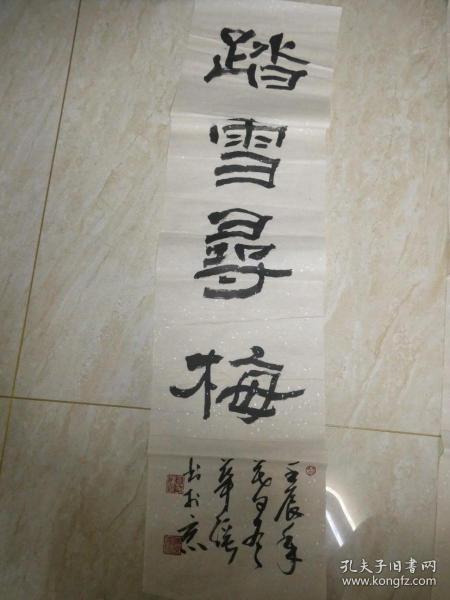 踏雪尋梅
壬辰年
书于京
孔夫子旧书网
www.kongfz.com